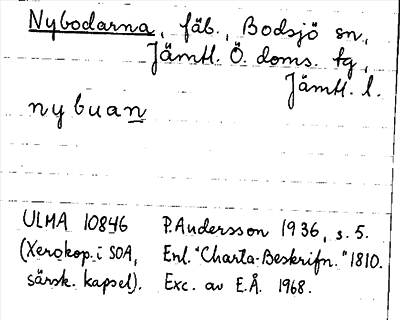 Nybodarna, fäb., Bodsjö sn,
Jämtl. Ö. doms. tg,
Jämtl. l.
nybuan
ULMA 10846 P. Andersson 1936, s. 5.
(Xerokop. i SOA, Enl. "Charta-Beskrifn." 1810.
särsk. kapsel). Exc. av E.Å. 1968.